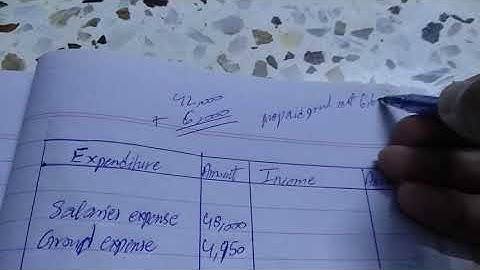 42,000
+ 6,000
prepaid
Expenditure Amount Income
Salaries expense 48,000
Group expense 4,950